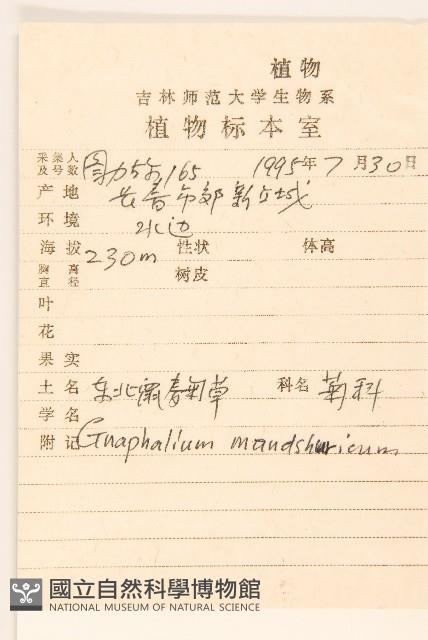 植物
吉林师范大学生物系
植物标本室
采集人及号数 165 1995年7月30日
产地 长春市郊新立城
环境 水边
海拔 230m 性状 体高
胸高直径 树皮
叶
花
果实
土名 东北鼠麴草 科名 菊科
学名
附记 Gnaphalium mandshuricum
國立自然科學博物館
NATIONAL MUSEUM OF NATURAL SCIENCE